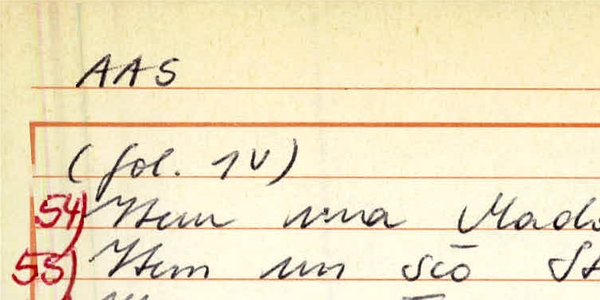 AAS
(fol. 1v)
54) Item una Mado
55) Item un sc̄o St